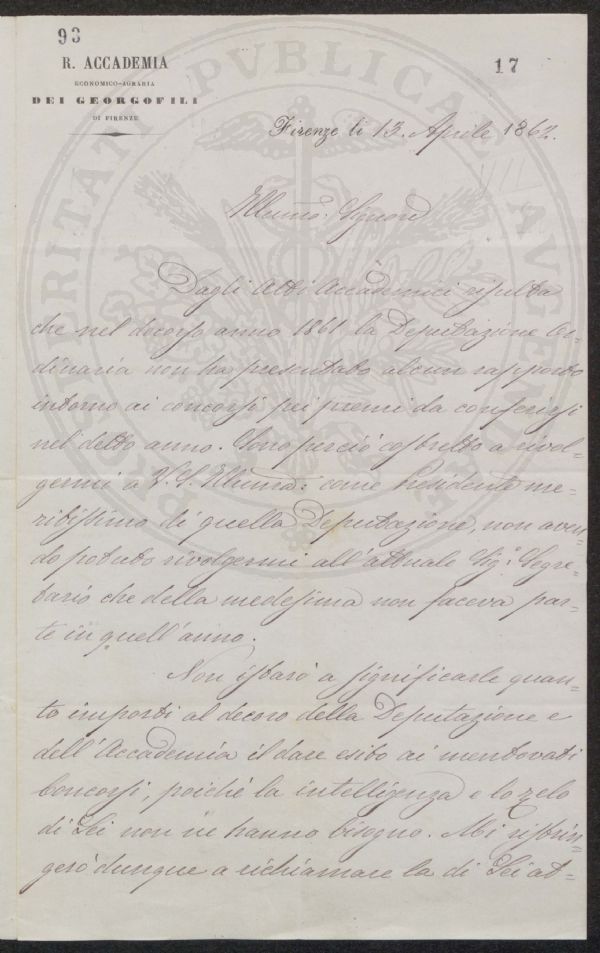 93
17
R. ACCADEMIA
ECONOMICO-AGRARIA
DEI GEORGOFILI
DI FIRENZE
Firenze li 13. Aprile 1862.
PROSPERITATI PVBLICAE AVGENDAE
Illmo: Signore
Dagli Atti Accademici risulta
che nel decorso anno 1861 la Deputazione Or-
dinaria non ha presentato alcun rapporto
intorno ai concorsi pei premi da conferirsi
nel detto anno. Sono perciò costretto a rivol-
germi a V. S. Illma: come Presidente me-
ritissimo di quella Deputazione, non aven-
do potuto rivolgermi all'attuale Sigr. Segre-
tario che della medesima non faceva par-
te in quell'anno.
Non istarò a significarle quan-
to importi al decoro della Deputazione e
dell'Accademia il dare esito ai mentovati
concorsi, poiché la intelligenza e lo zelo
di Lei non ne hanno bisogno. Mi ristrin-
gerò dunque a richiamare la di Lei at-